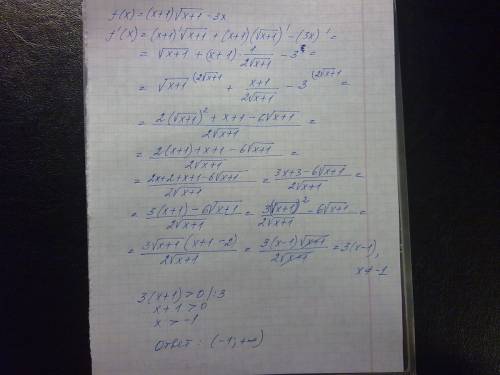 f(x) = (x+1)√x+1 - 3x
f'(x) = (x+1)'√x+1 + (x+1)(√x+1)' - (3x)' =
= √x+1 + (x+1) · 1/2√x+1 - 3 =
= √x+1 (2√x+1 + x+1/2√x+1 - 3 (2√x+1 =
= 2(√x+1)² + x+1 - 6√x+1/2√x+1 =
= 2(x+1) + x+1 - 6√x+1/2√x+1 =
= 2x+2+x+1-6√x+1/2√x+1 = 3x+3-6√x+1/2√x+1 =
= 3(x+1) - 6√x+1/2√x+1 = 3(√x+1)² - 6√x+1/2√x+1 =
= 3√x+1 (x+1-2)/2√x+1 = 3(x-1)√x+1/2√x+1 = 3(x-1),
x ≠ -1
3(x+1) > 0 /:3
x+1 > 0
x > -1
Ответ: (-1; +∞)